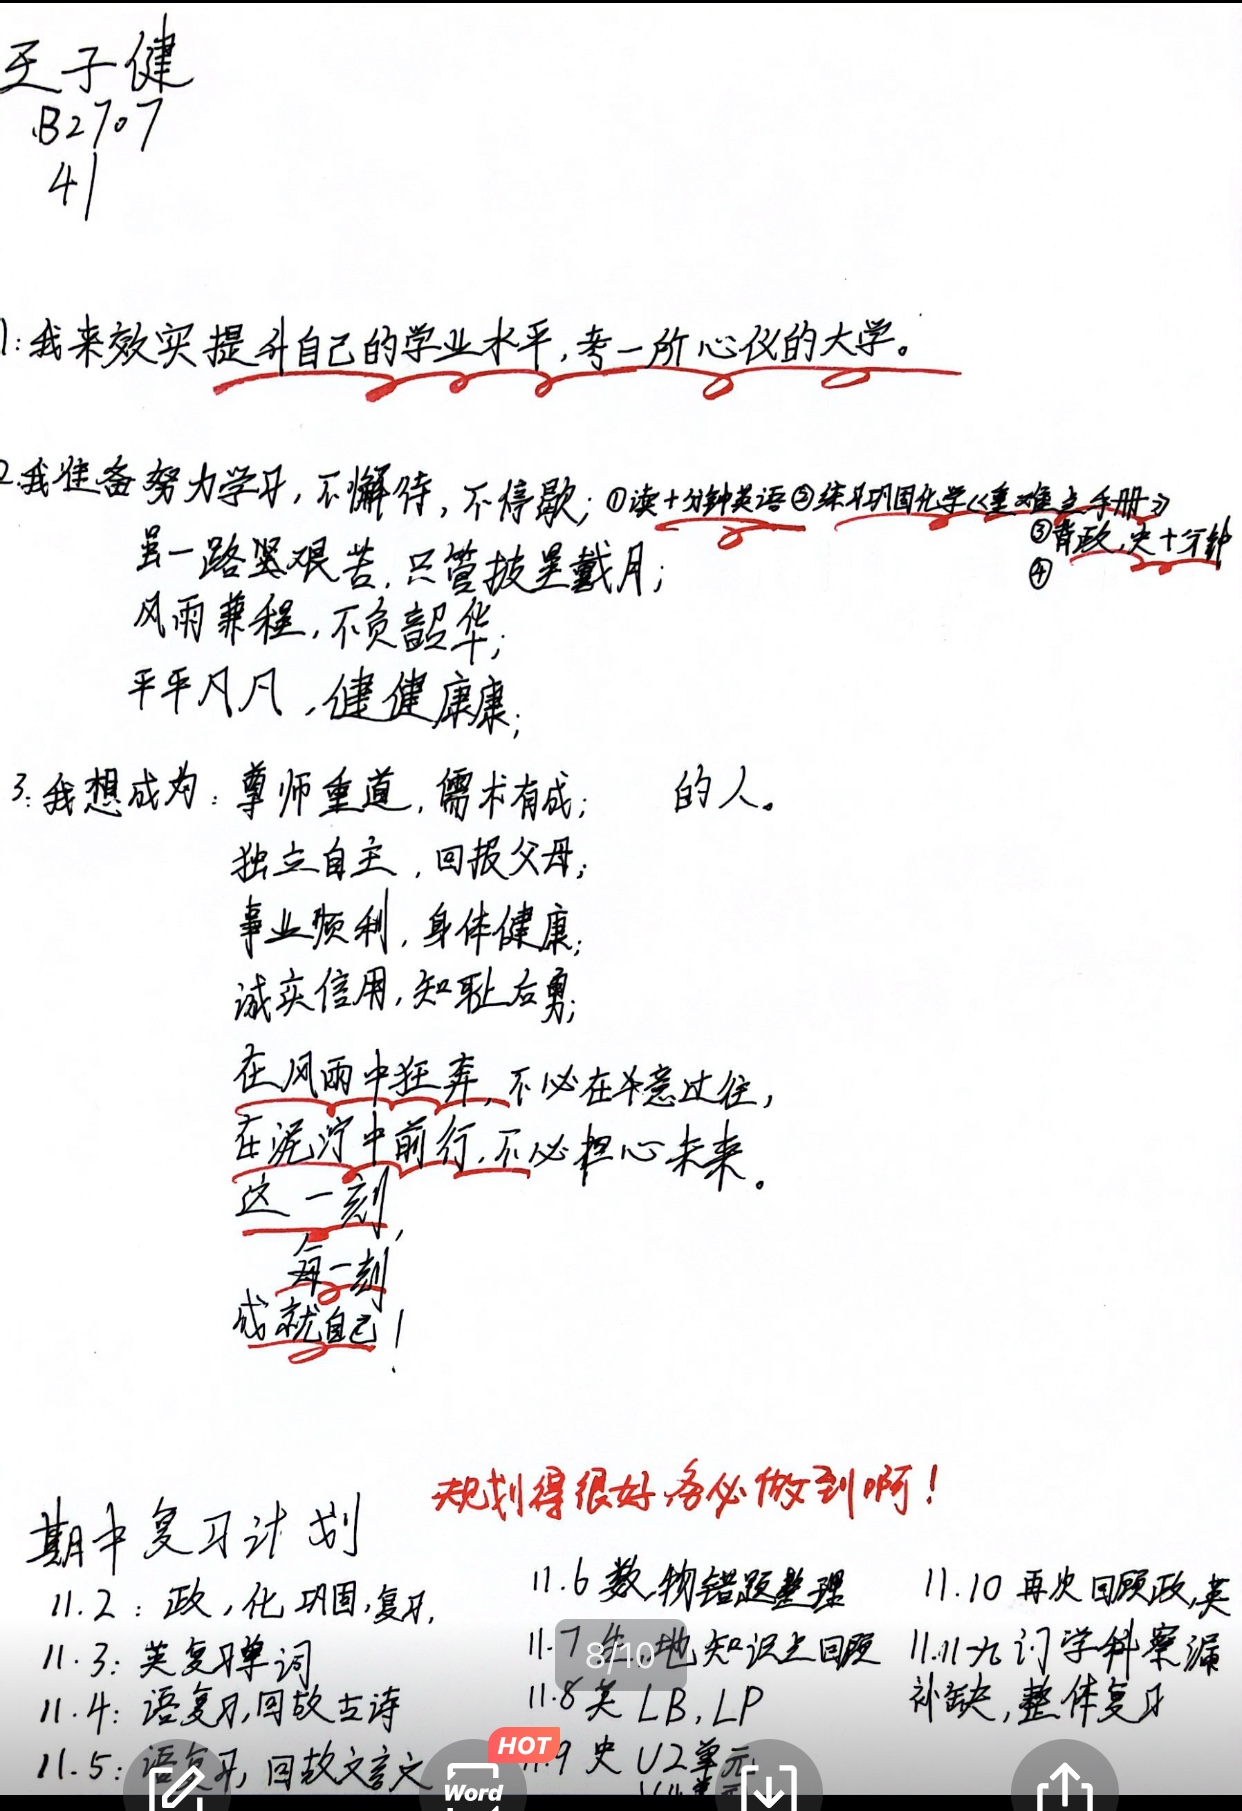 王子健
B2707
41
1:我来效实提升自己的学业水平,考一所心仪的大学。
2.我准备努力学习,不懈待,不停歇;①读十分钟英语②练习巩固化学《重难点手册》
③背政,史十分钟
虽一路坚艰苦,只管披星戴月;
④
风雨兼程,不负韶华;
平平凡凡,健健康康;
3:我想成为:尊师重道,儒术有成; 的人。
独立自主,回报父母;
事业顺利,身体健康;
诚实信用,知耻后勇;
在风雨中狂奔,不必在乎意过往,
在泥泞中前行,不必担心未来。
这一刻,
每一刻
成就自己!
规划得很好,务必做到啊!
期中复习计划
11.2:政,化巩固,复习,
11.3:英复习单词
11.4:语复习,回故古诗
11.5:语复习,回故文言文
11.6 数,物错题整理
11.7 生,地知识点回顾
11.8 英 LB,LP
11.9 史 U2单元
11.10 再次回顾政,英
11.11九门学科察漏
补缺,整体复习
8/10
HOT
Word